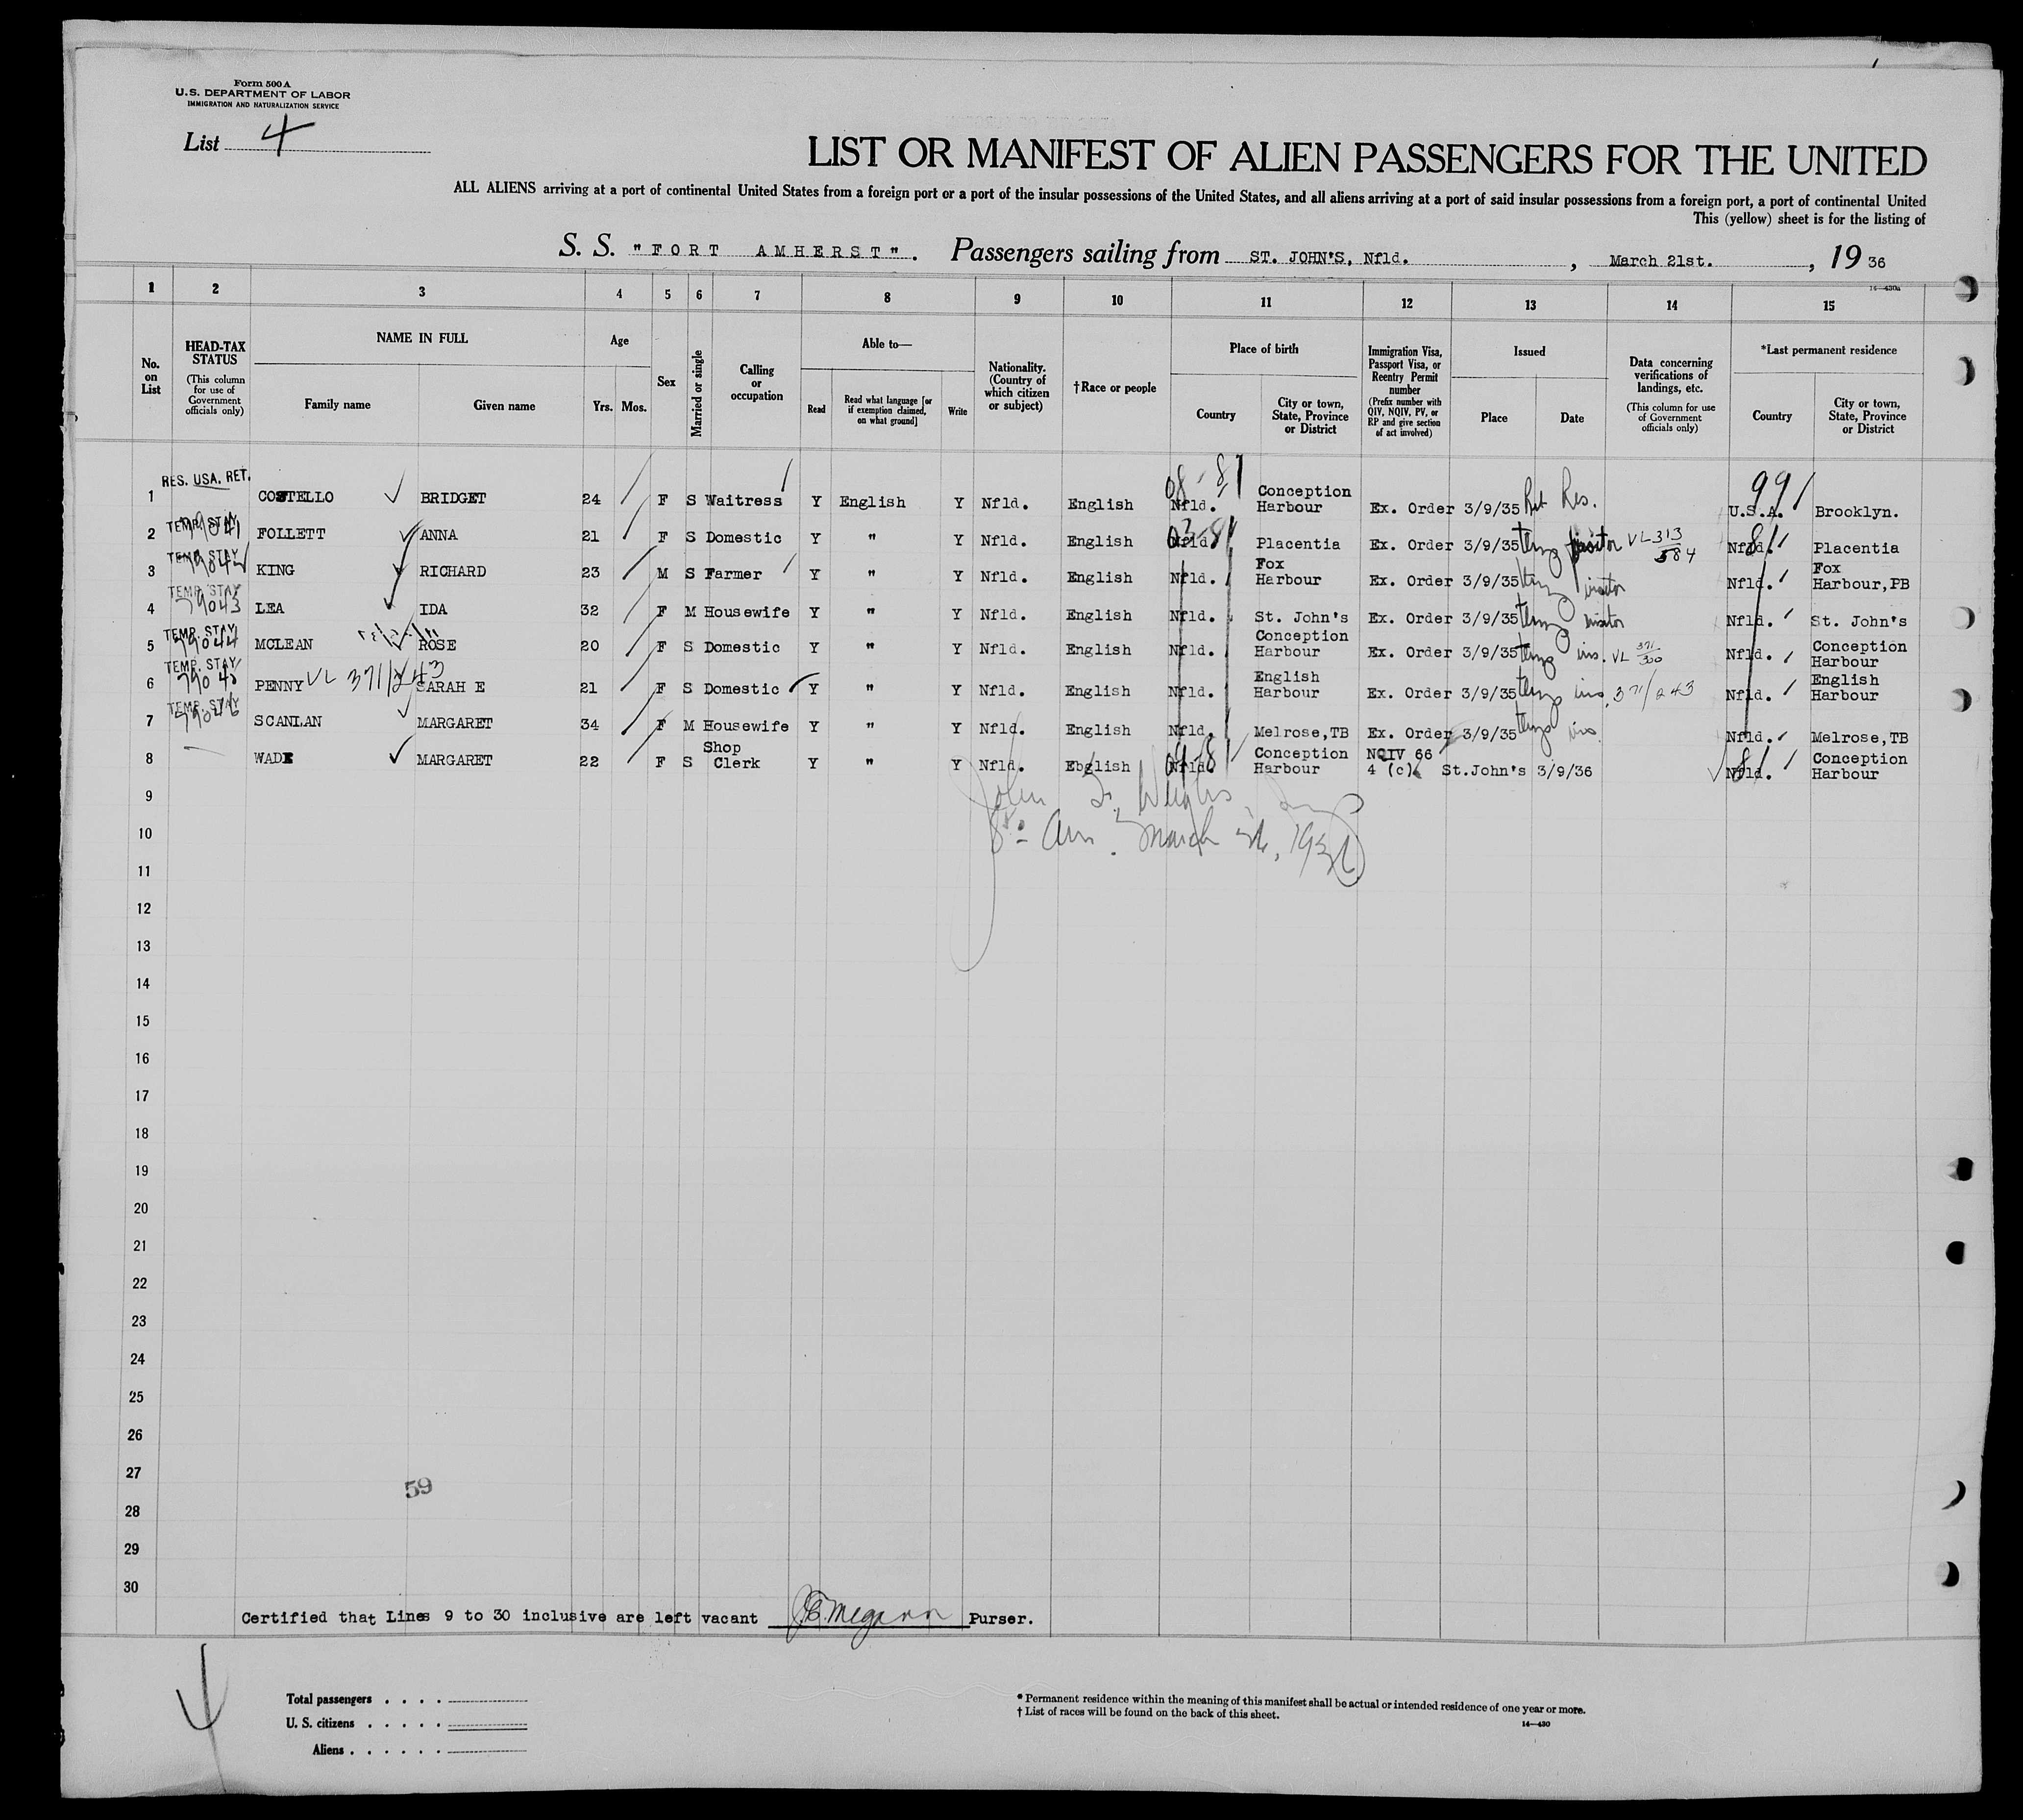 Form 500 A
U.S. DEPARTMENT OF LABOR
IMMIGRATION AND NATURALIZATION SERVICE
List 4
LIST OR MANIFEST OF ALIEN PASSENGERS FOR THE UNITED
ALL ALIENS arriving at a port of continental United States from a foreign port or a port of the insular possessions of the United States, and all aliens arriving at a port of said insular possessions from a foreign port, a port of continental United
This (yellow) sheet is for the listing of
S. S. "FORT AMHERST". Passengers sailing from ST. JOHN'S, Nfld. , March 21st. , 19 36
14—430a
1 2 3 4 5 6 7 8 9 10 11 12 13 14 15
No. on List
HEAD-TAX STATUS (This column for use of Government officials only)
NAME IN FULL
Family name Given name
Age
Yrs. Mos.
Sex
Married or single
Calling or occupation
Able to—
Read
Read what language [or if exemption claimed, on what ground]
Write
Nationality. (Country of which citizen or subject)
†Race or people
Place of birth
Country
City or town, State, Province or District
Immigration Visa, Passport Visa, or Reentry Permit number (Prefix number with QIV, NQIV, PV, or RP and give section of act involved)
Issued
Place Date
Data concerning verifications of landings, etc. (This column for use of Government officials only)
*Last permanent residence
Country
City or town, State, Province or District
1 RES. USA. RET. COSTELLO BRIDGET 24 F S Waitress Y English Y Nfld. English Nfld. Conception Harbour Ex. Order 3/9/35 Ret Res. 99 U.S.A. Brooklyn.
2 TEMP. STAY 79041 FOLLETT ANNA 21 F S Domestic Y " Y Nfld. English Nfld. Placentia Ex. Order 3/9/35 temp visitor VL 313/584 Nfld. Placentia
3 TEMP. STAY 79042 KING RICHARD 23 M S Farmer Y " Y Nfld. English Nfld. Fox Harbour Ex. Order 3/9/35 temp visitor Nfld. Fox Harbour,PB
4 TEMP. STAY 79043 LEA IDA 32 F M Housewife Y " Y Nfld. English Nfld. St. John's Ex. Order 3/9/35 temp visitor Nfld. St. John's
5 TEMP. STAY 79044 MCLEAN ROSE 20 F S Domestic Y " Y Nfld. English Nfld. Conception Harbour Ex. Order 3/9/35 temp vis. VL 371/300 Nfld. Conception Harbour
6 TEMP. STAY 79045 PENNY VL 371/243 SARAH E 21 F S Domestic Y " Y Nfld. English Nfld. English Harbour Ex. Order 3/9/35 temp vis. 371/243 Nfld. English Harbour
7 TEMP. STAY 79046 SCANLAN MARGARET 34 F M Housewife Y " Y Nfld. English Nfld. Melrose,TB Ex. Order 3/9/35 temp vis. Nfld. Melrose,TB
8 WADE MARGARET 22 F S Shop Clerk Y " Y Nfld. Ebglish Nfld. Conception Harbour NQIV 66 4 (c) St.John's 3/9/36 Nfld. Conception Harbour
9
John
10
March 1936
11
12
13
14
15
16
17
18
19
20
21
22
23
24
25
26
27
59
28
29
30
Certified that Lines 9 to 30 inclusive are left vacant Purser.
4
Total passengers . . . .
U. S. citizens . . . . .
Aliens . . . . . .
* Permanent residence within the meaning of this manifest shall be actual or intended residence of one year or more.
† List of races will be found on the back of this sheet.
14—430